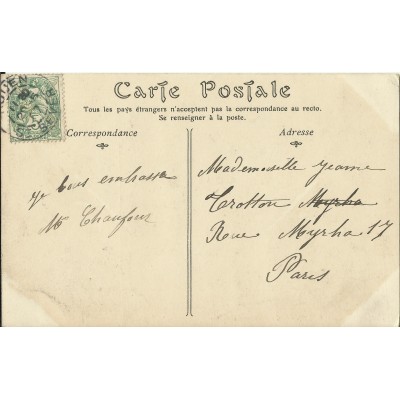 Carte Postale
Tous les pays étrangers n'acceptent pas la correspondance au recto.
Se renseigner à la poste.
Correspondance
Adresse
Je vous embrasse
M Chaufour
Mademoiselle Jeanne
Trotton Myrha
Rue Myrha 17
Paris